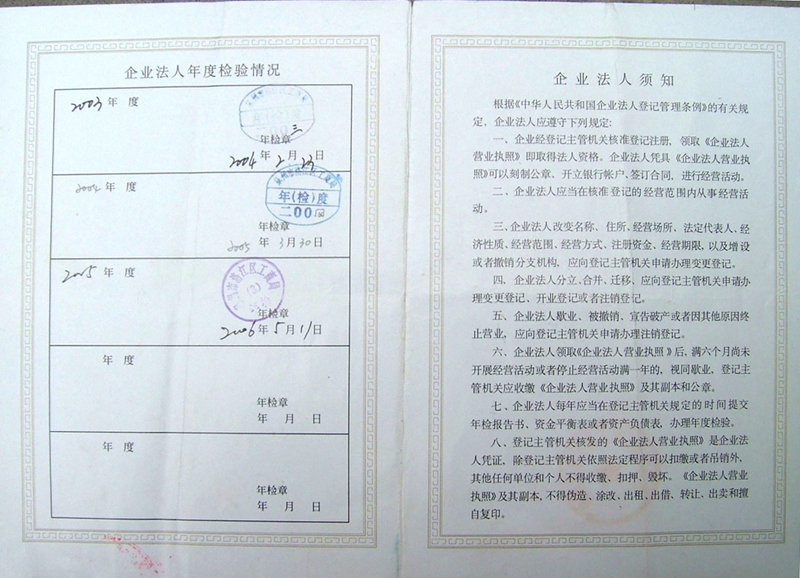 企业法人年度检验情况
2003年 度
年检章
2004年2月23日
2004年 度
年(检)度
二00四
年检章
2005年3月30日
2005年 度
年检章
2006年5月11日
年 度
年检章
年 月 日
年 度
年检章
年 月 日
企业法人须知
根据《中华人民共和国企业法人登记管理条例》的有关规
定，企业法人应遵守下列规定:
一、企业经登记主管机关核准登记注册，领取《企业法人
营业执照》即取得法人资格。企业法人凭具《企业法人营业执
照》可以刻制公章、开立银行帐户、签订合同，进行经营活动。
二、企业法人应当在核准登记的经营范围内从事经营活
动。
三、企业法人改变名称、住所、经营场所、法定代表人、经
济性质、经营范围、经营方式、注册资金、经营期限，以及增设
或者撤销分支机构，应向登记主管机关申请办理变更登记。
四、企业法人分立、合并、迁移，应向登记主管机关申请办
理变更登记、开业登记或者注销登记。
五、企业法人歇业、被撤销、宣告破产或者因其他原因终
止营业，应向登记主管机关申请办理注销登记。
六、企业法人领取《企业法人营业执照》后，满六个月尚未
开展经营活动或者停止经营活动满一年的，视同歇业，登记主
管机关应收缴《企业法人营业执照》及其副本和公章。
七、企业法人每年应当在登记主管机关规定的时间提交
年检报告书、资金平衡表或者资产负债表，办理年度检验。
八、登记主管机关核发的《企业法人营业执照》是企业法
人凭证，除登记主管机关依照法定程序可以扣缴或者吊销外，
其他任何单位和个人不得收缴、扣押、毁坏。《企业法人营业
执照》及其副本，不得伪造、涂改、出租、出借、转让、出卖和擅
自复印。